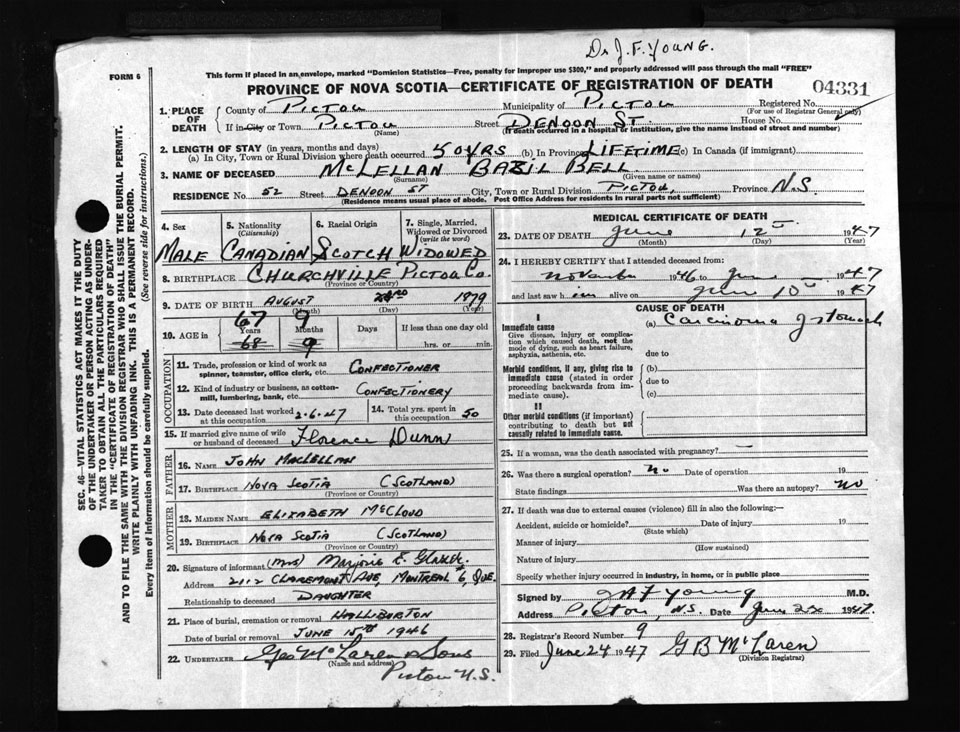 Dr J. F. YOUNG.
FORM 6
This form if placed in an envelope, marked "Dominion Statistics—Free, penalty for improper use $300," and properly addressed will pass through the mail "FREE"
PROVINCE OF NOVA SCOTIA—CERTIFICATE OF REGISTRATION OF DEATH
04331
1. PLACE OF DEATH County of PICTOU Municipality of PICTOU Registered No.
(For use of Registrar General only)
If in City or Town PICTOU Street DENOON ST. House No.
(Name) (If death occurred in a hospital or institution, give the name instead of street and number)
2. LENGTH OF STAY (in years, months and days)
(a) In City, Town or Rural Division where death occurred 50 YRS (b) In Province LIFETIME (c) In Canada (if immigrant)
3. NAME OF DECEASED McLELLAN BAZIL BELL
(Surname) (Given name or names)
RESIDENCE No. 52 Street DENOON ST City, Town or Rural Division PICTOU, Province N.S.
(Residence means usual place of abode. Post Office Address for residents in rural parts not sufficient)
SEC. 46—VITAL STATISTICS ACT MAKES IT THE DUTY
OF THE UNDERTAKER OR PERSON ACTING AS UNDER-
TAKER TO OBTAIN ALL THE PARTICULARS REQUIRED
IN THE "CERTIFICATE OF REGISTRATION OF DEATH"
AND TO FILE THE SAME WITH THE DIVISION REGISTRAR WHO SHALL ISSUE THE BURIAL PERMIT.
WRITE PLAINLY WITH UNFADING INK. THIS IS A PERMANENT RECORD.
Every item of information should be carefully supplied. (See reverse side for instructions.)
4. Sex 5. Nationality (Citizenship) 6. Racial Origin 7. Single, Married, Widowed or Divorced (write the word)
MALE CANADIAN SCOTCH WIDOWED
8. BIRTHPLACE CHURCHVILLE PICTOU Co.
(Province or Country)
9. DATE OF BIRTH AUGUST 1879
(Month) (Day) (Year)
10. AGE in 67 9
Years Months Days If less than one day old
68 9 hrs. or min.
OCCUPATION
11. Trade, profession or kind of work as spinner, teamster, office clerk, etc. CONFECTIONER
12. Kind of industry or business, as cotton-mill, lumbering, bank, etc. CONFECTIONERY
13. Date deceased last worked at this occupation 2-6-47 14. Total yrs. spent in this occupation 50
15. If married give name of wife or husband of deceased Florence Dunn
FATHER
16. NAME JOHN MACLELLAN
17. BIRTHPLACE NOVA SCOTIA (SCOTLAND)
(Province or Country)
MOTHER
18. MAIDEN NAME ELIZABETH McCLOUD
19. BIRTHPLACE NOVA SCOTIA (SCOTLAND)
(Province or Country)
20. Signature of informant (Mrs) Marjorie E.
Address 2112 CLAREMONT AVE, MONTREAL #6, QUE.
Relationship to deceased DAUGHTER
21. Place of burial, cremation or removal HALLIBURTON
Date of burial or removal JUNE 15TH 1946
22. UNDERTAKER Geo McLaren & Sons
(Name and address)
Pictou N.S.
MEDICAL CERTIFICATE OF DEATH
23. DATE OF DEATH June 12 1947
(Month) (Day) (Year)
24. I HEREBY CERTIFY that I attended deceased from:
November 1946 to June 1947
and last saw him alive on June 10 1947
CAUSE OF DEATH
I
Immediate cause (a) Carcinoma of stomach
Give disease, injury or complication which caused death, not the mode of dying, such as heart failure, asphyxia, asthenia, etc. due to
Morbid conditions, if any, giving rise to immediate cause (stated in order proceeding backwards from immediate cause). (b)
due to
(c)
II
Other morbid conditions (if important) contributing to death but not causally related to immediate cause.
25. If a woman, was the death associated with pregnancy? —
26. Was there a surgical operation? No Date of operation 19
State findings Was there an autopsy? no
27. If death was due to external causes (violence) fill in also the following:—
Accident, suicide or homicide? Date of injury 19
(State which)
Manner of injury
(How sustained)
Nature of injury
Specify whether injury occurred in industry, in home, or in public place
Signed by J F Young M.D.
Address Pictou, N.S. Date June 1947.
28. Registrar's Record Number 9
29. Filed June 24 1947 G B McLaren
(Division Registrar)